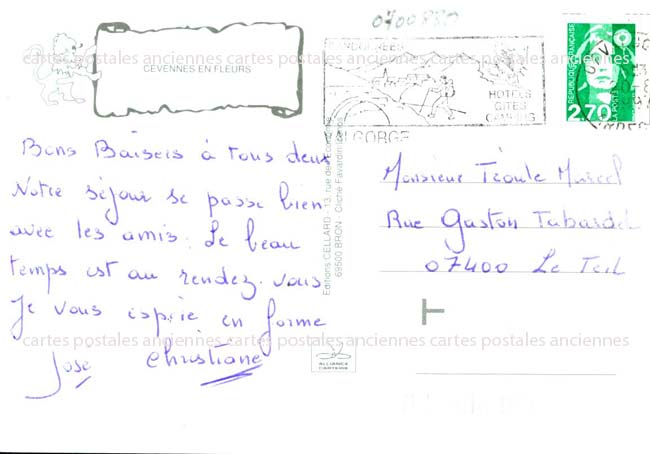 0700880
CEVENNES EN FLEURS
RANDONNEES
HOTELS
GITES
CAMPING
VALGORGE
REPUBLIQUE FRANÇAISE
2,70
cartes postales anciennes cartes postales anciennes cartes postales anciennes
Bons Baisers à tous deux
Notre séjour se passe bien
avec les amis. Le beau
temps est au rendez-vous
Je vous espère en forme
José Christiane
Editions CELLARD - 13, rue des
69500 BRON - Cliché Favardin
Monsieur Téoule Marcel
Rue Gaston Tabardel
07400 Le Teil
T
cartes postales anciennes cartes postales anciennes cartes postales anciennes
ALLIANCE
CARTERIE